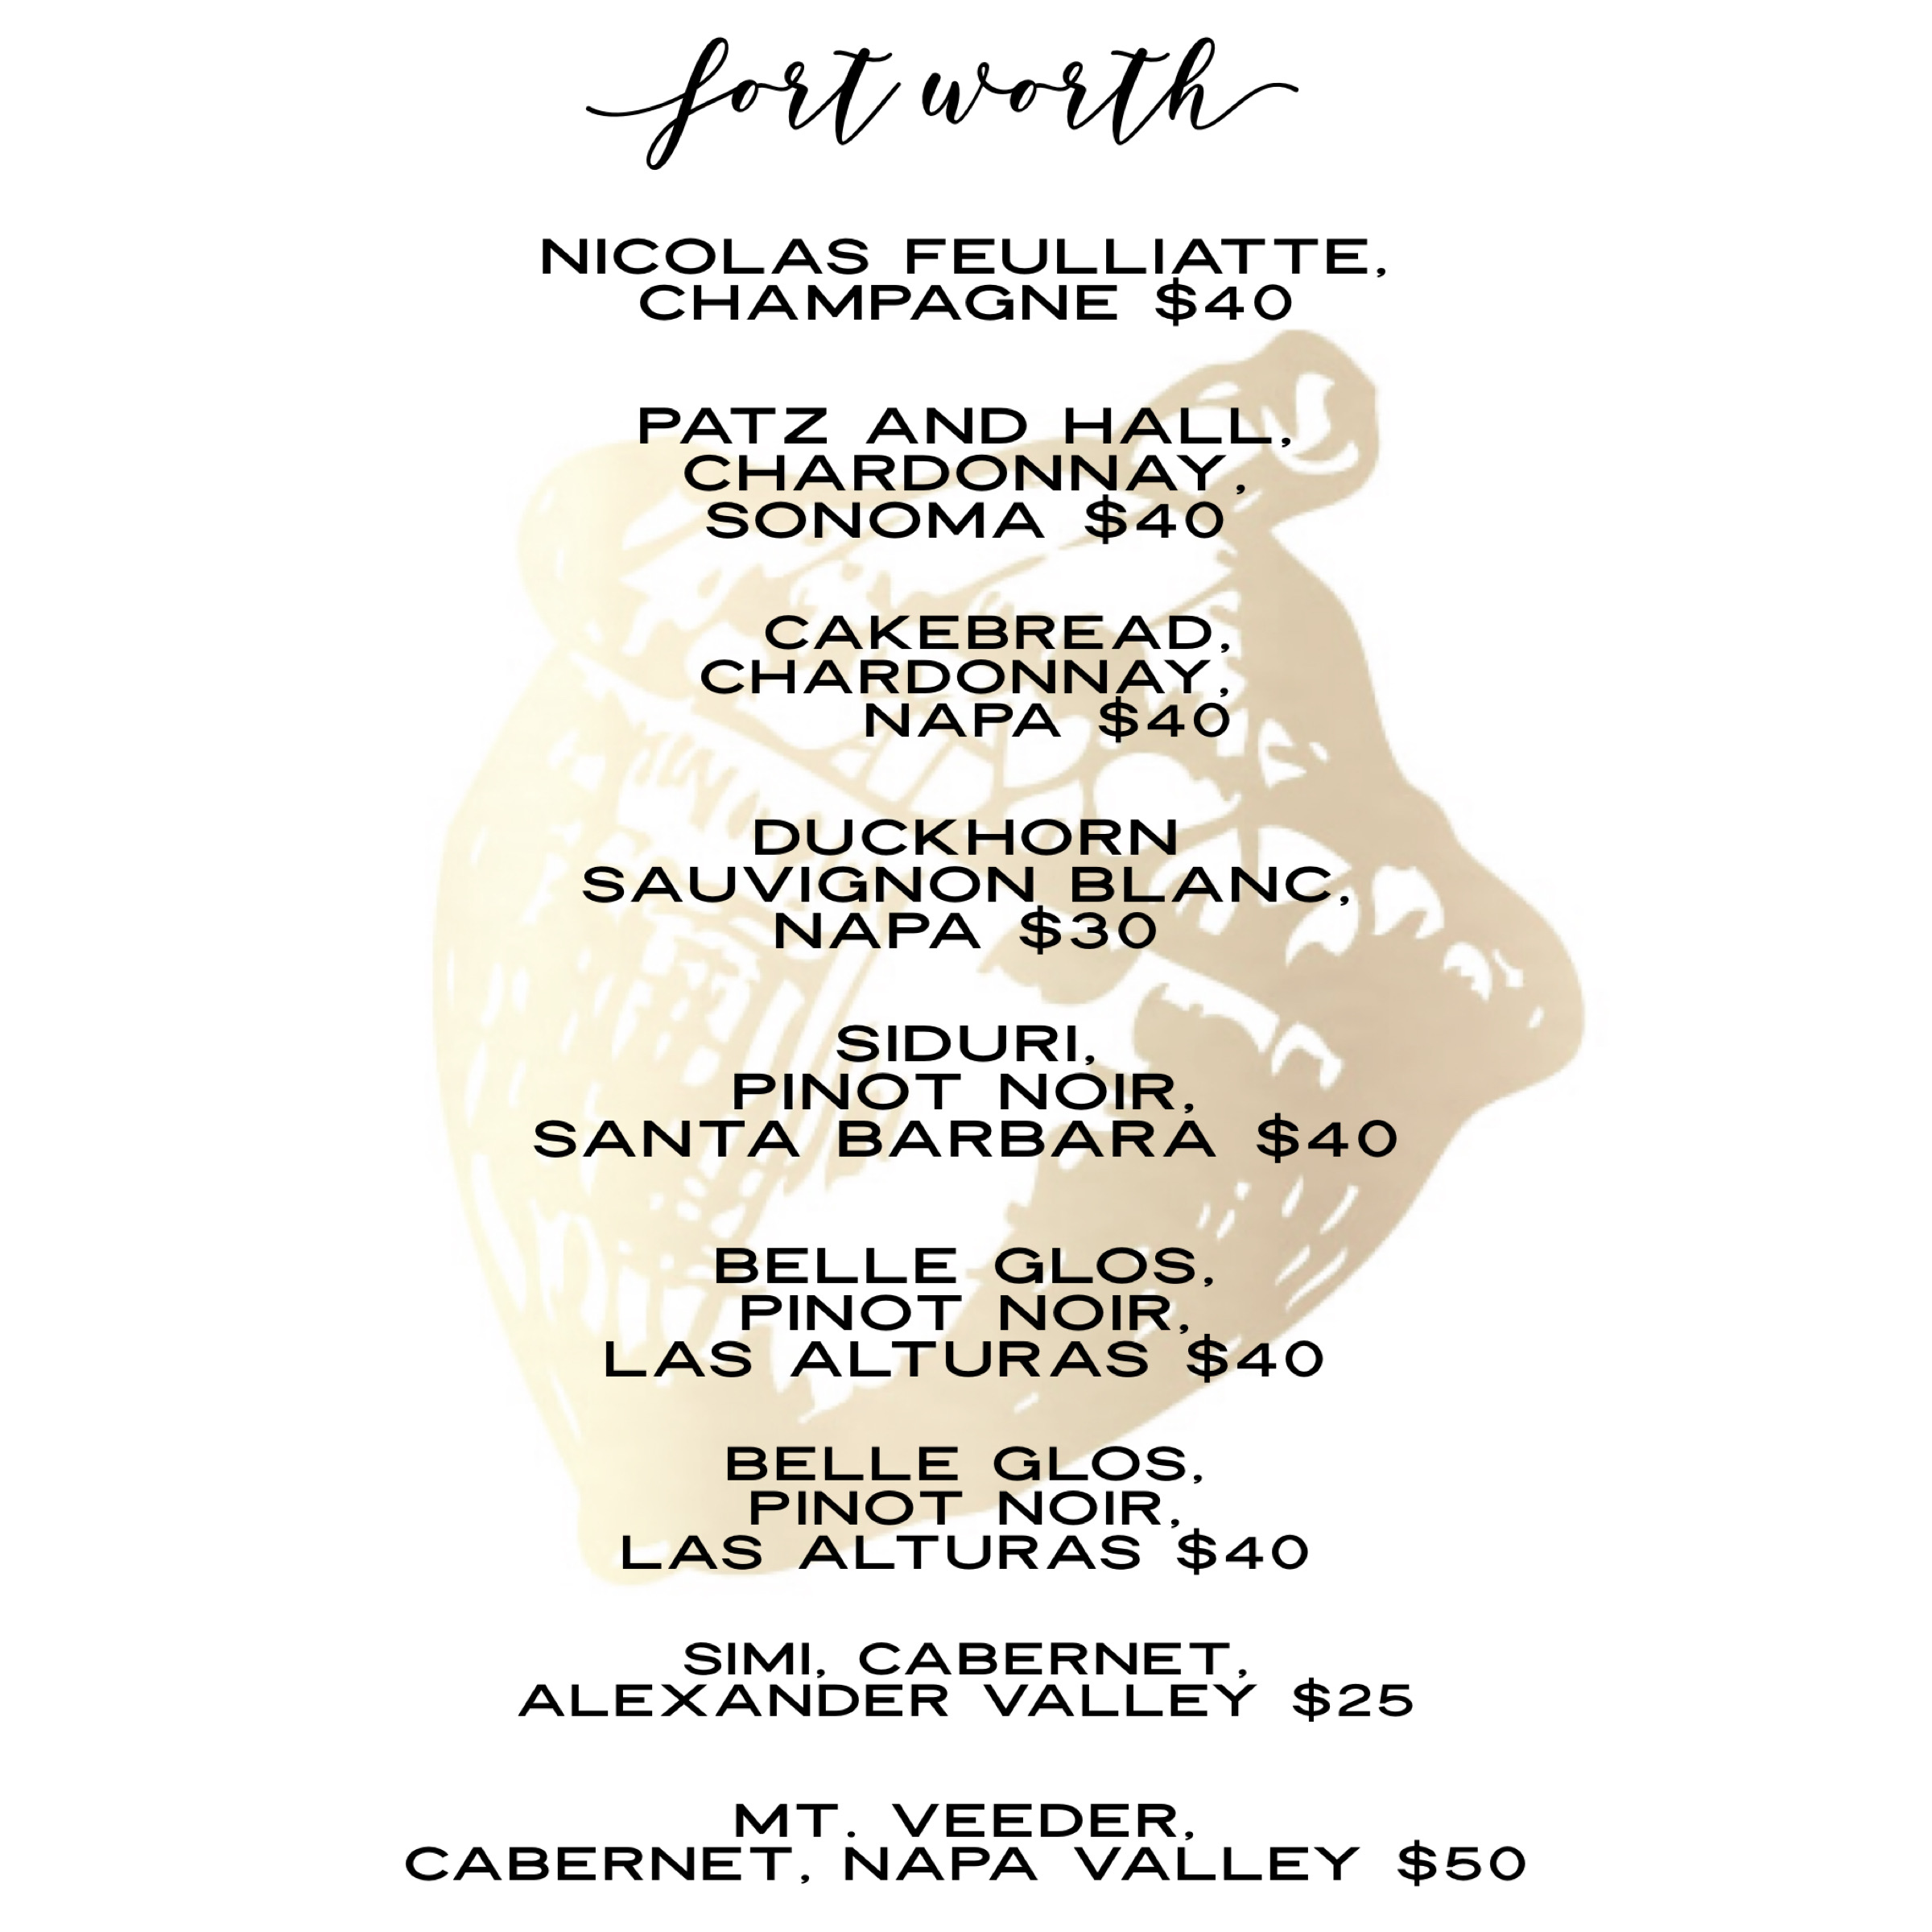 fort worth
NICOLAS FEULLIATTE,
CHAMPAGNE $40
PATZ AND HALL,
CHARDONNAY,
SONOMA $40
CAKEBREAD,
CHARDONNAY,
NAPA $40
DUCKHORN
SAUVIGNON BLANC,
NAPA $30
SIDURI,
PINOT NOIR,
SANTA BARBARA $40
BELLE GLOS,
PINOT NOIR,
LAS ALTURAS $40
BELLE GLOS,
PINOT NOIR,
LAS ALTURAS $40
SIMI, CABERNET,
ALEXANDER VALLEY $25
MT. VEEDER,
CABERNET, NAPA VALLEY $50